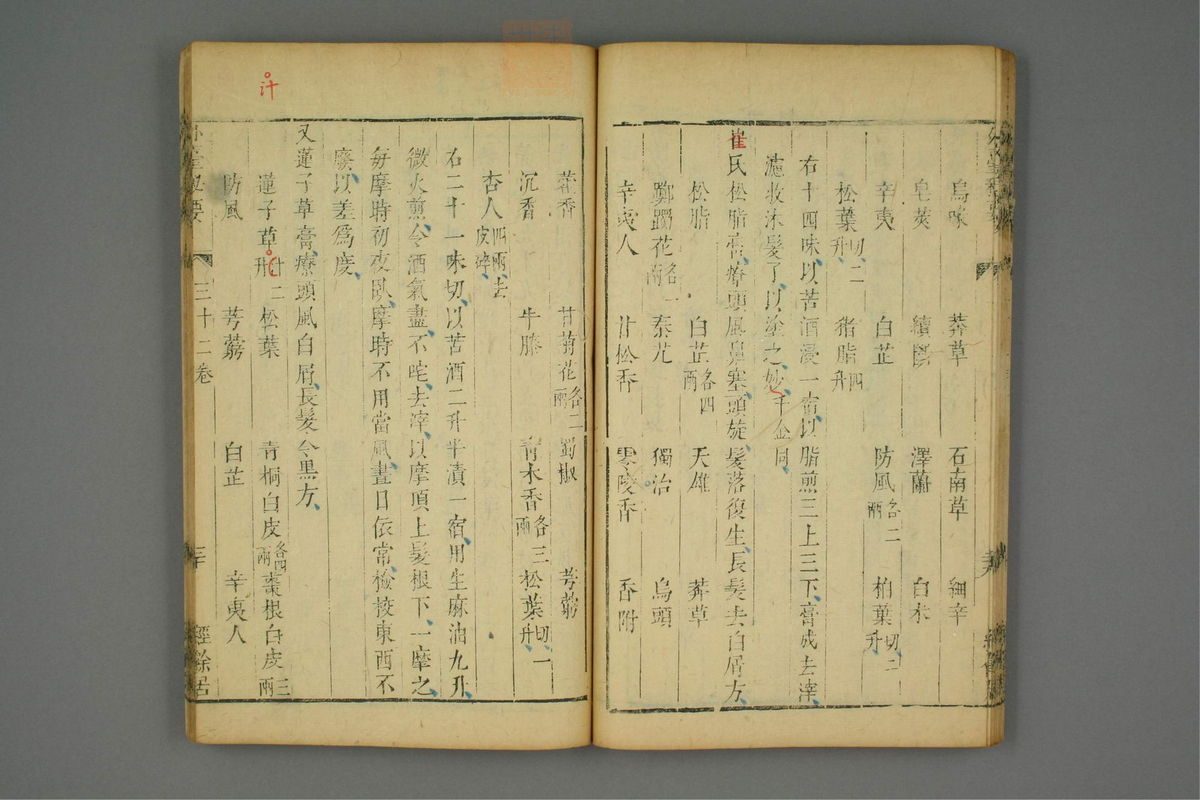 烏喙 莽草 石南草 細辛
皂莢 續斷 澤蘭 白朮
辛夷 白芷 防風各二兩 柏葉切二升
松葉切二升 猪脂四升
右十四味以苦酒漬一宿以脂煎三上三下膏成去滓
濾收沐髮了以塗之妙千金同
崔氏松脂膏療頭風鼻塞頭旋髮落復生長髮去白屑方
松脂 白芷各四兩 天雄 莽草
躑躅花各一兩 秦艽 獨活 烏頭
辛夷人 甘松香 零陵香 香附
藿香 甘菊花各二兩 蜀椒 芎藭
沉香 牛膝 青木香各三兩 松葉切一升
杏人四兩去皮碎
右二十一味切以苦酒二升半漬一宿用生麻油九升
微火煎令酒氣盡不咤去滓以摩頂上髮根下一摩之
每摩時初夜臥摩時不用當風晝日依常檢挍東西不
廢以差爲度
又蓮子草膏療頭風白屑長髮令黑方
蓮子草汁二升 松葉 青桐白皮各四兩 棗根白皮三兩
防風 芎藭 白芷 辛夷人
外臺秘要 三十二卷 三十 經餘居
汁